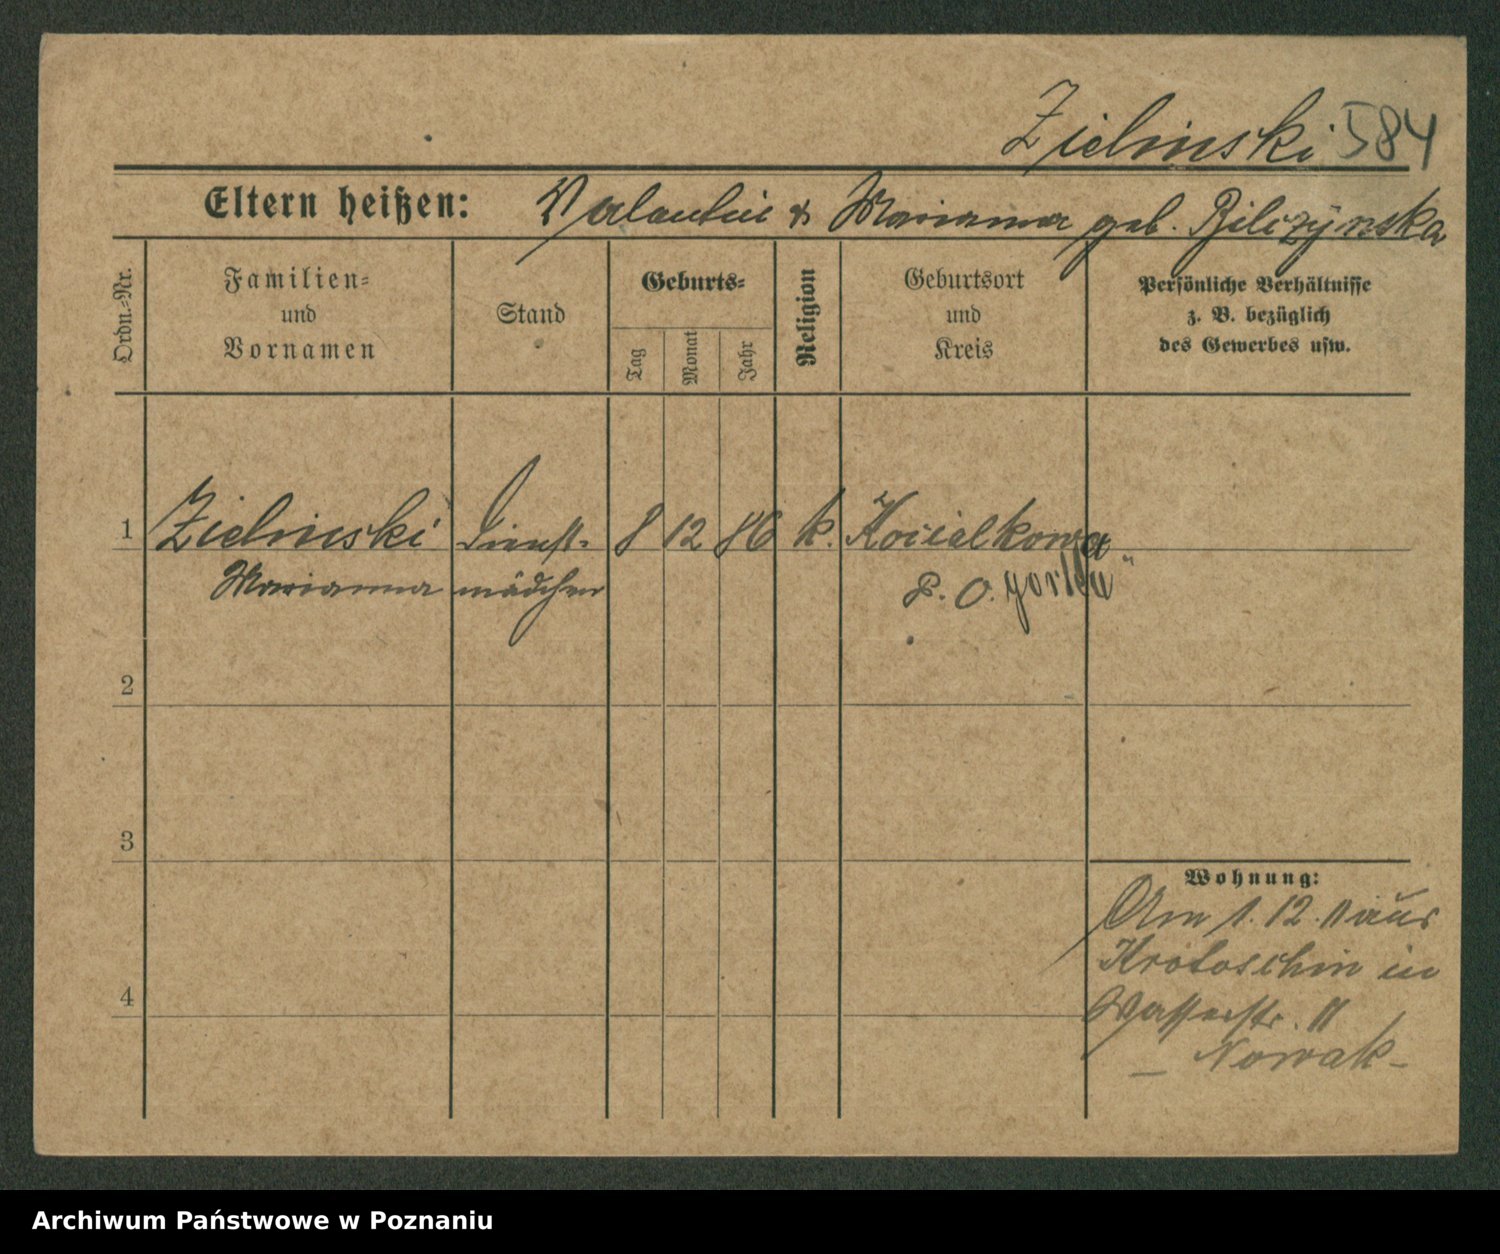 Zielinski 584
Eltern heißen: Valentin & Marianna geb. Bilczynska
Ordn.-Nr.
Familien-
und
Vornamen
Stand
Geburts-
Tag
Monat
Jahr
Religion
Geburtsort
und
Kreis
Persönliche Verhältnisse
z. B. bezüglich
des Gewerbes usw.
1 Zielinski Dienst- 8 12 86 k. Kocialkowa
Marianna mädchen P. O. gorka
2
3
4
Wohnung:
Am 1. 12. 11 aus
Krotoschin in
Wasserstr. 11
– Nowak –
Archiwum Państwowe w Poznaniu